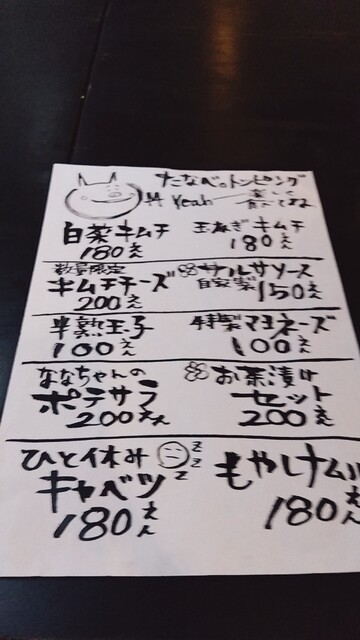 たなべ。トンピング
Yeah
白菜キムチ
180えん
玉ねぎキムチ
180えん
数量限定
キムチチーズ
200えん
サルサソース
自家製 150えん
半熟玉子
100えん
特製マヨネーズ
100えん
ななちゃんの
ポテサラ
200えん
お茶漬け
セット
200えん
ひと休み
zzz
キャベツ
180えん
もやしナムル
180えん